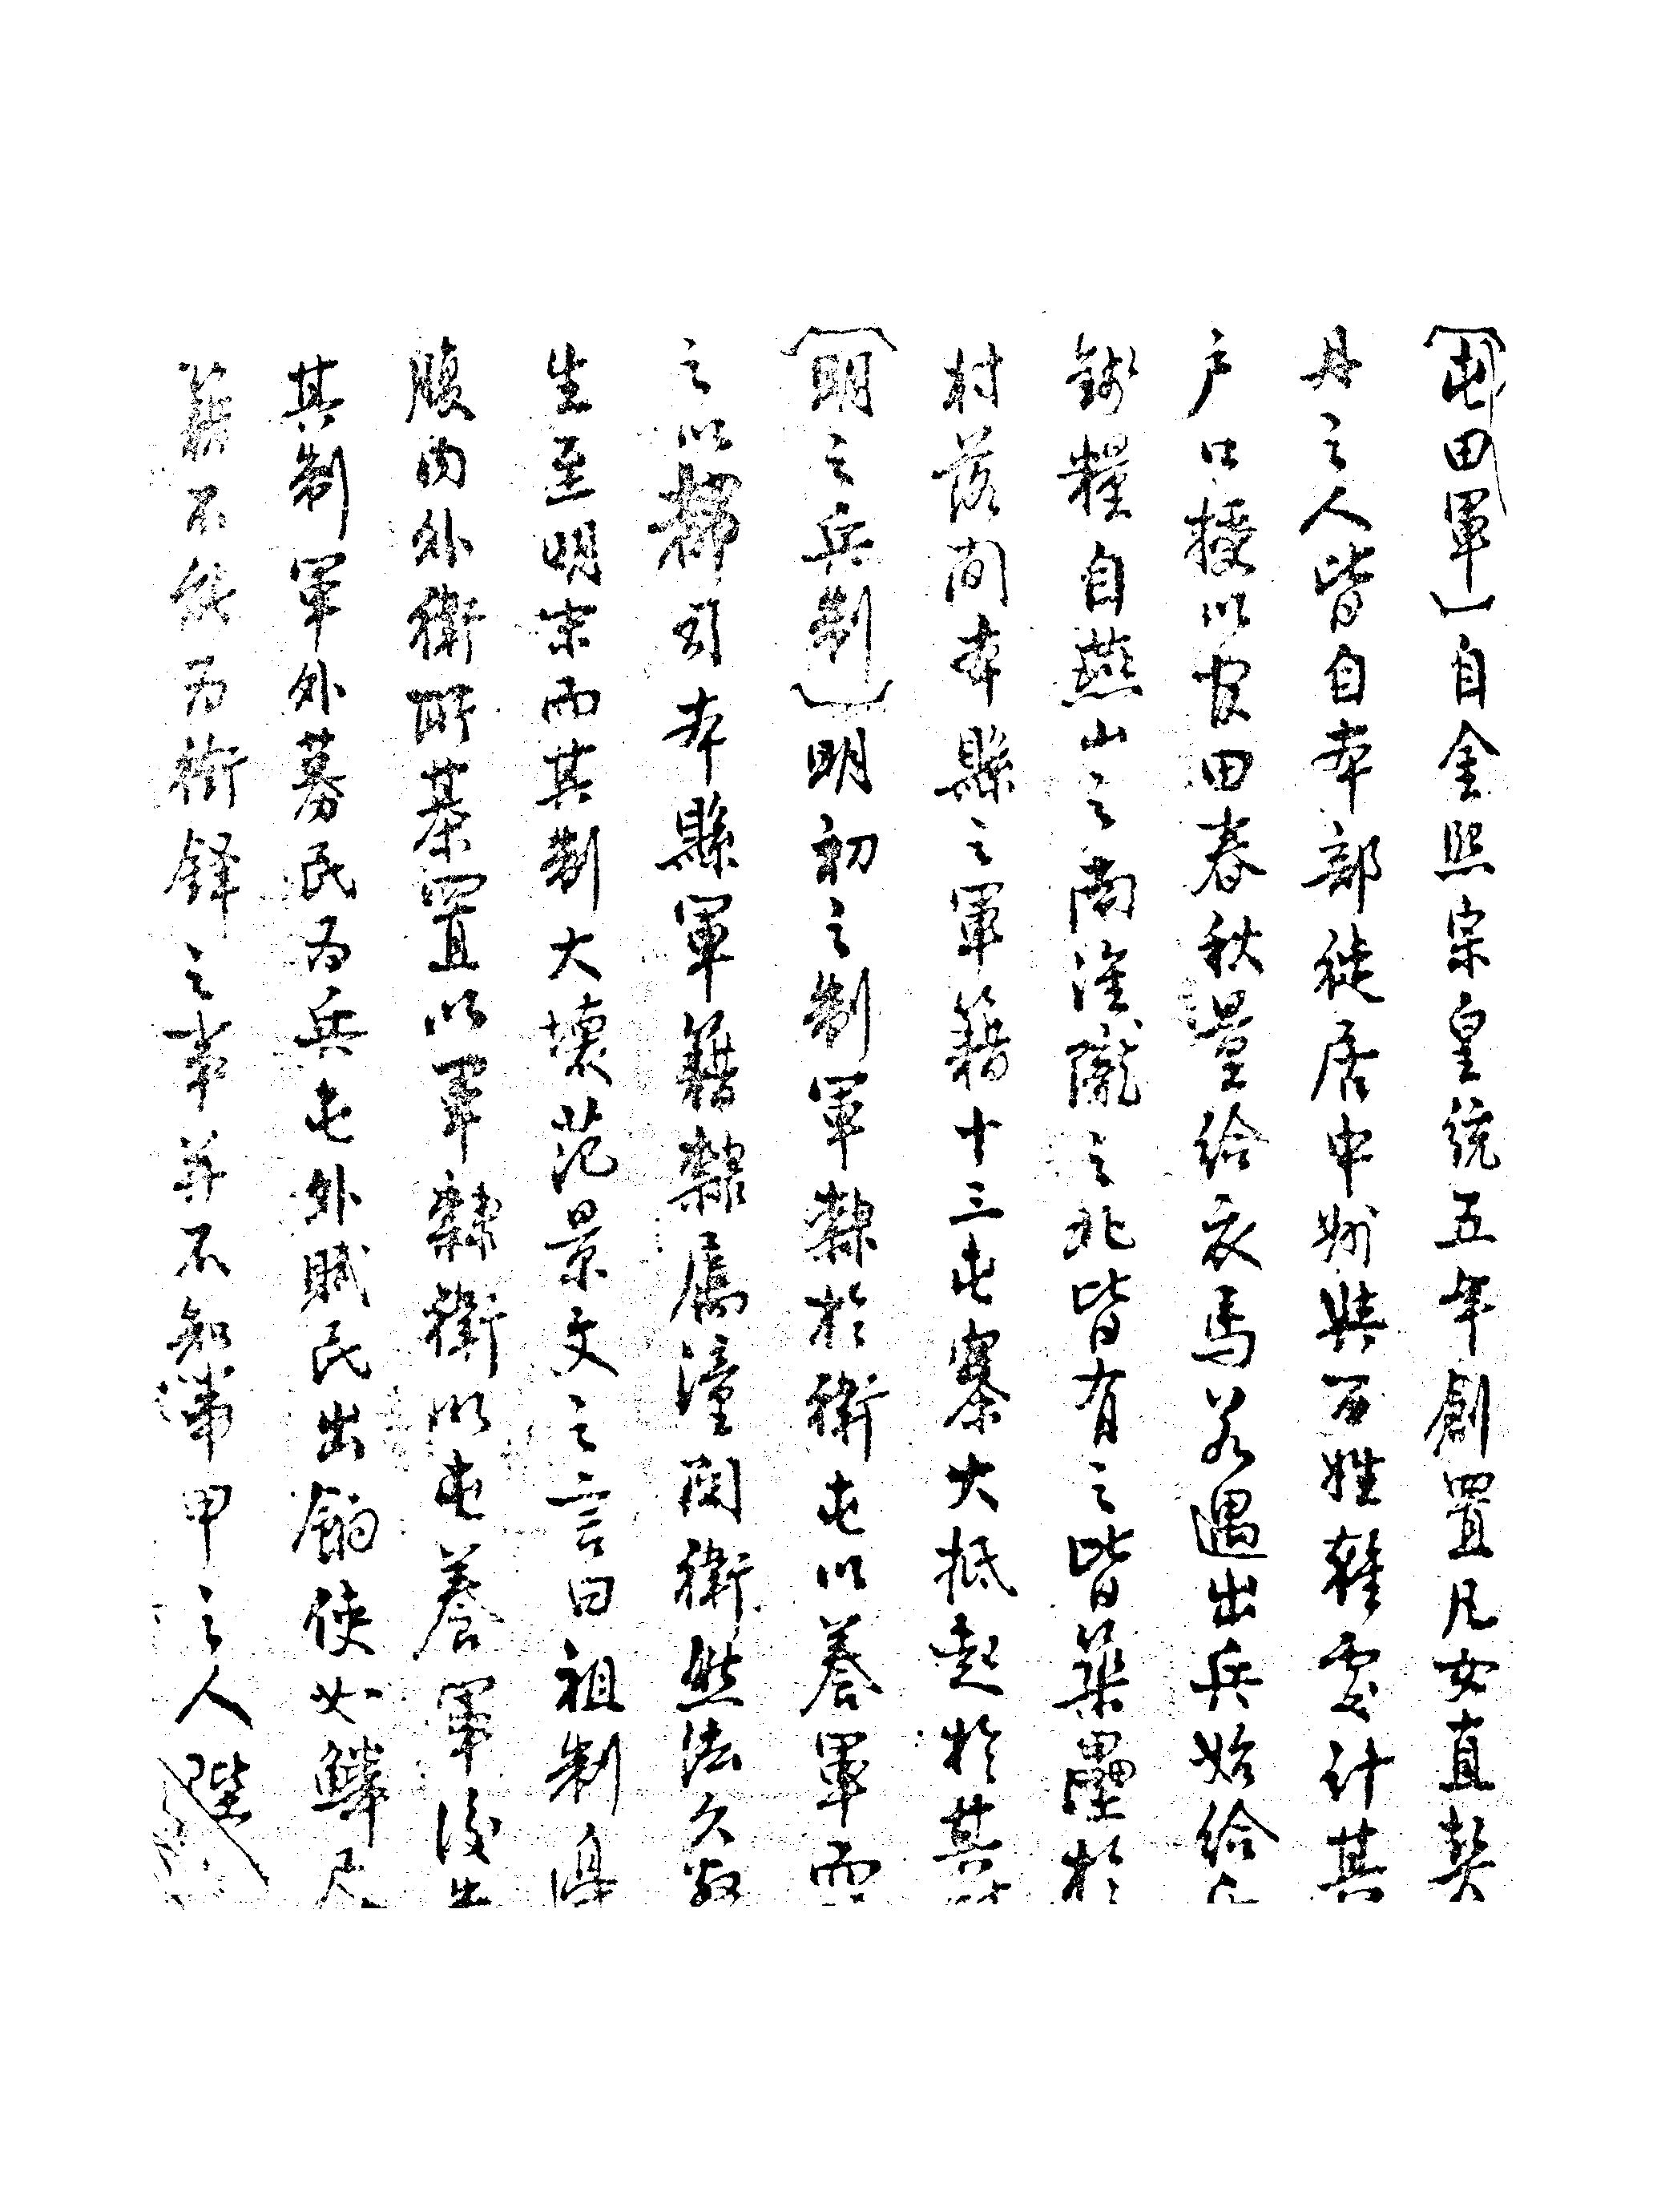 〔屯田軍〕自金熙宗皇統五年創置凡女直契
丹之人皆自本部徙居中州與百姓雜處計其
户口授以官田春秋量給衣馬若遇出兵始給
錢糧自燕山之南淮隴之北皆有之皆築壘於
村落间本縣之軍籍十三屯寨大抵起於其
〔明之兵制〕明初之制軍隸於衛屯以養軍而
之以 本縣軍籍隸属潼関衛然法久敝
生至明末而其制大壞范景文之言曰祖制邊
腹内外衛所棊置以軍隸衛以屯養軍後失
其制軍外募民为兵屯外賦民出餉使如鱗尺
籍不能为衝鋒之事并不知帯甲之人